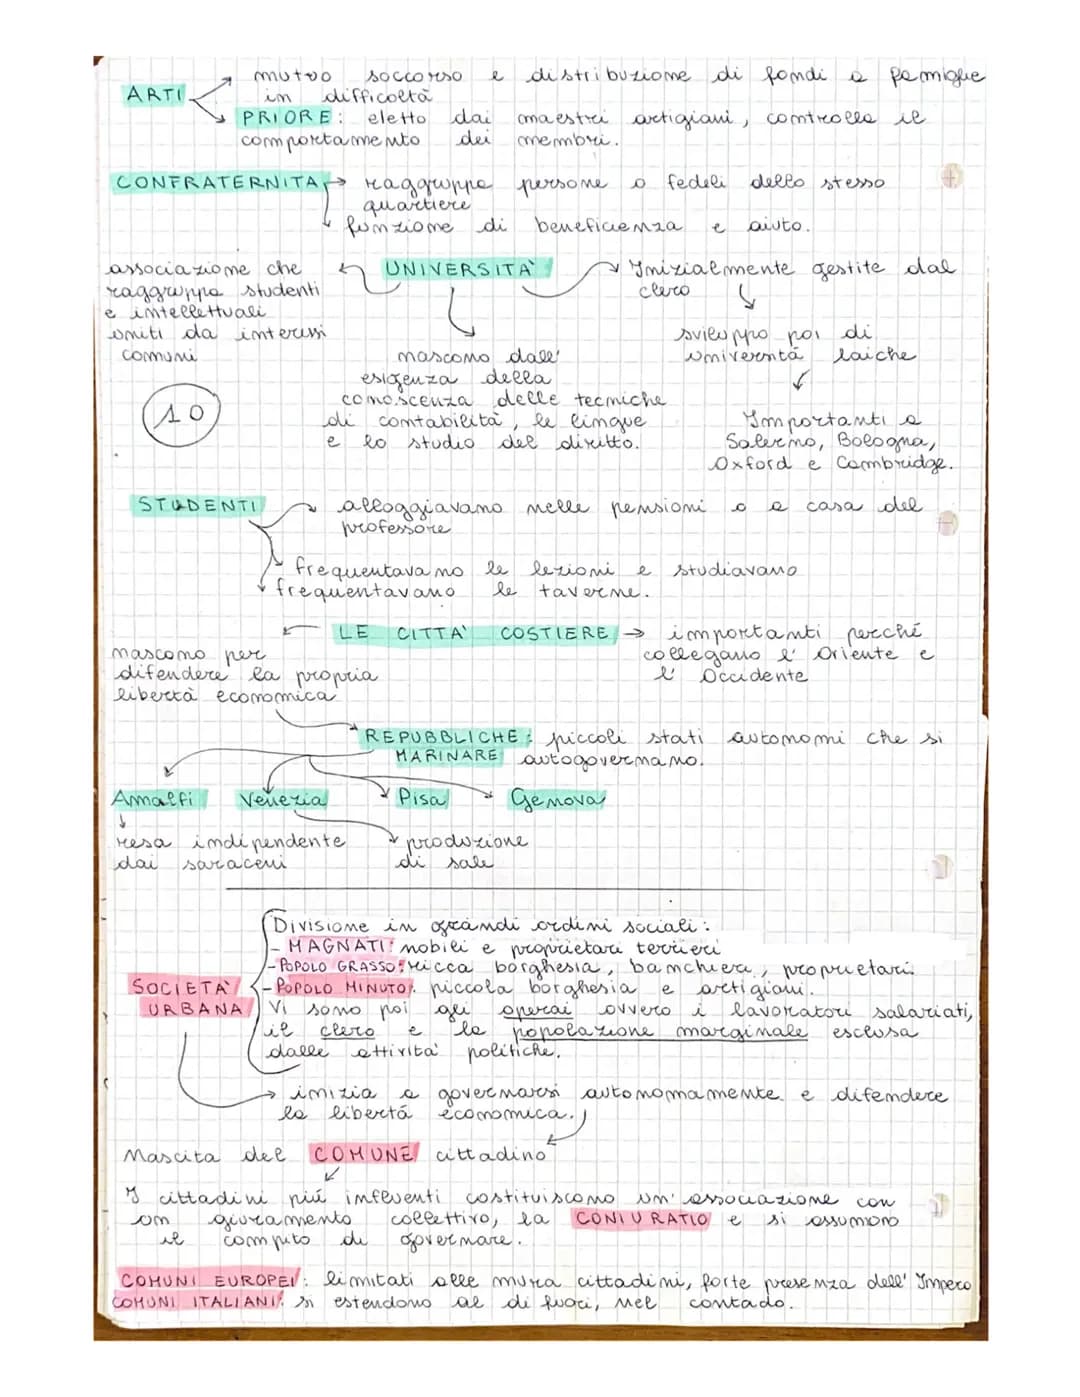 mutuo soccorso e distribuzione di fondi a famiglie
ARTI
in difficoltà
PRIORE: eletto dai maestri artigiani, controlla il
comportamento dei membri.
CONFRATERNITA raggruppa persone o fedeli dello stesso
quartiere
funzione di beneficienza e aiuto.
UNIVERSITÀ
associazione che
raggruppa studenti
e intellettuali
uniti da interessi
comuni
nascono dall'
esigenza della
conoscenza delle tecniche
di contabilità, le lingue
e lo studio del diritto.
Inizialmente gestite dal
clero
sviluppo poi di
università laiche
Importanti a
Salerno, Bologna,
Oxford e Cambridge.
10
STUDENTI
alloggiavano nelle pensioni o a casa del
professore
frequentavano le lezioni e studiavano
frequentavano le taverne.
LE CITTA' COSTIERE
importanti perché
collegano l'Oriente e
l'Occidente
nascono per
difendere la propria
libertà economica
REPUBBLICHE: piccoli stati autonomi che si
MARINARE autogovernano.
Amalfi Venezia Pisa Genova
resa indipendente
dai saraceni
produzione
di sale
Divisione in grandi ordini sociali:
- MAGNATI: nobili e proprietari terrieri
- POPOLO GRASSO: ricca borghesia, banchieri, proprietari.
SOCIETA'
URBANA
- POPOLO MINUTO: piccola borghesia e artigiani.
Vi sono poi gli operai ovvero i lavoratori salariati,
il clero e la popolazione marginale esclusa
dalle attività politiche.
inizia a governarsi autonomamente e difendere
la libertà economica.
Nascita del COMUNE cittadino
I cittadini più influenti costituiscono un'associazione con
un giuramento collettivo, la CONIURATIO e si assumono
il compito di governare.
COMUNI EUROPEI: limitati alle mura cittadini, forte presenza dell'Impero
COMUNI ITALIANI: si estendono al di fuori, nel contado.